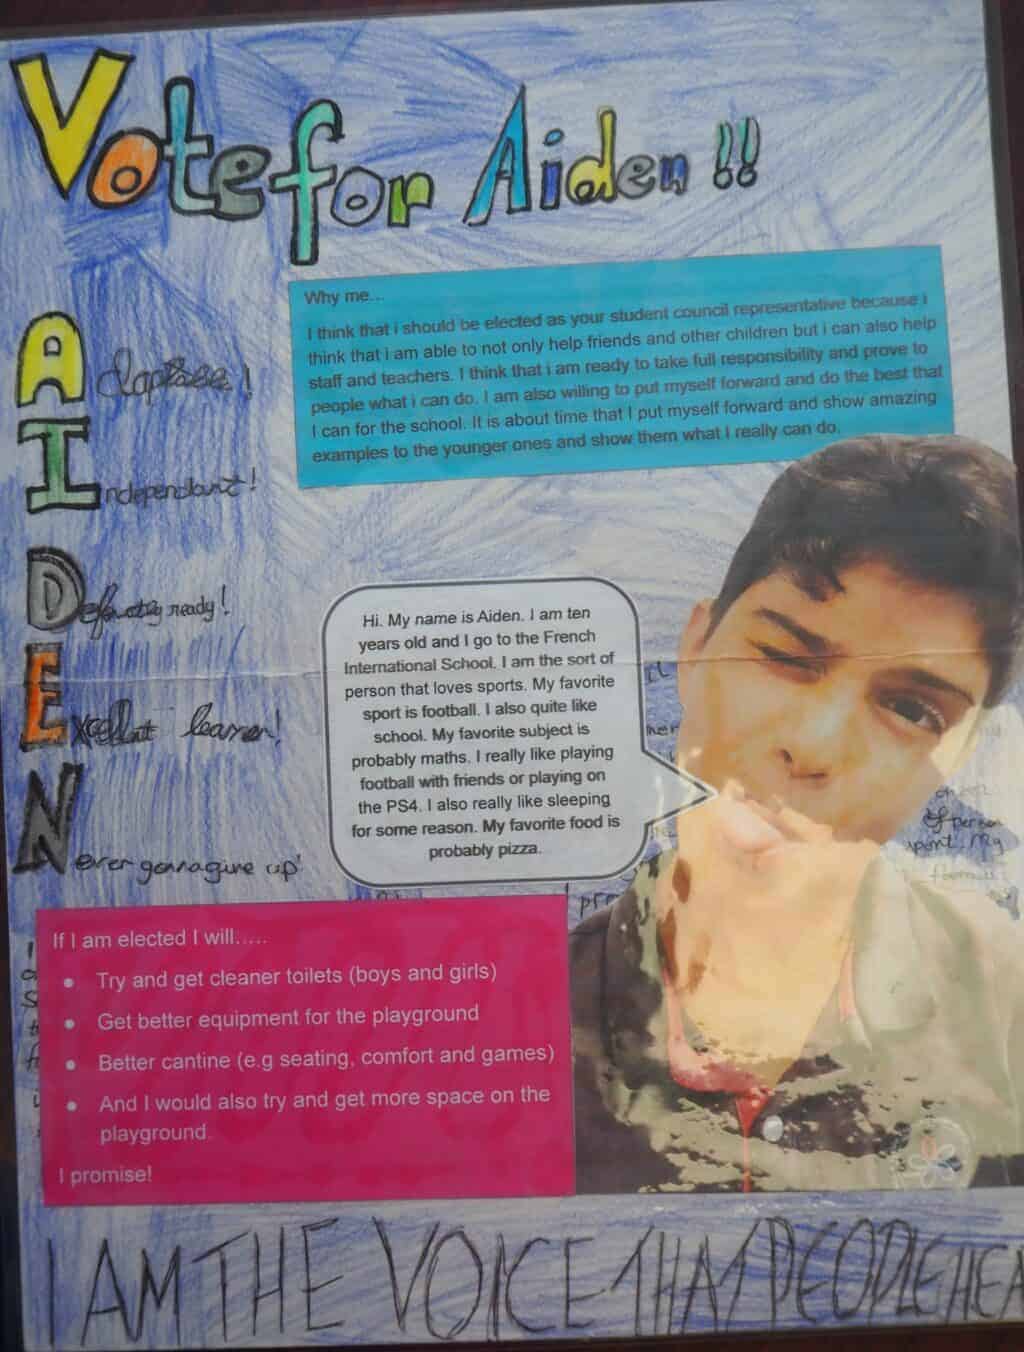 Vote for Aiden !!
Why me...
I think that i should be elected as your student council representative because i
think that i am able to not only help friends and other children but i can also help
staff and teachers. I think that i am ready to take full responsibility and prove to
people what i can do. I am also willing to put myself forward and do the best that
I can for the school. It is about time that I put myself forward and show amazing
examples to the younger ones and show them what I really can do.
A
Independant!
Definately ready!
Excellent learner!
Never gonna give up!
Hi. My name is Aiden. I am ten
years old and I go to the French
International School. I am the sort of
person that loves sports. My favorite
sport is football. I also quite like
school. My favorite subject is
probably maths. I really like playing
football with friends or playing on
the PS4. I also really like sleeping
for some reason. My favorite food is
probably pizza.
of person
sport. My
If I am elected I will.....
• Try and get cleaner toilets (boys and girls)
• Get better equipment for the playground
• Better cantine (e.g seating, comfort and games)
• And I would also try and get more space on the
playground.
I promise!
I AM THE VOICE THAT PEOPLE HEA